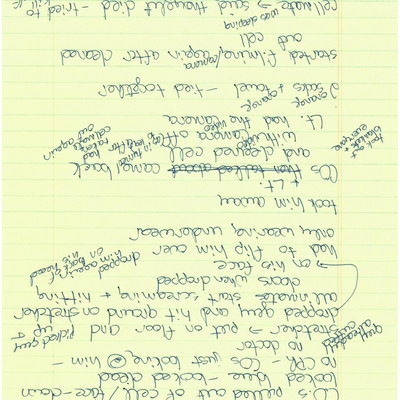 CO's pulled out of cell/face-down
looked blue - looked dead
no CPR - COs just looking @ him -
no doctor
guy already cuffed
stretcher → put on floor and picked guy up
dropped guy and hit ground on stretcher
all inmates start screaming + hitting
doors when dropped
→ on his face
had to flip him over dropped again
on back of his head
only wearing underwear
took him away
+ Lt.
COs came back
and cleaned cell
with video camera off
took out
blankets +
everyone
Lt. had the video camera
2 orange sacks + orange towel - tied together
started filming/camera again after cleaned
out cell
was sleeping
cellmate → said thought died - tried to